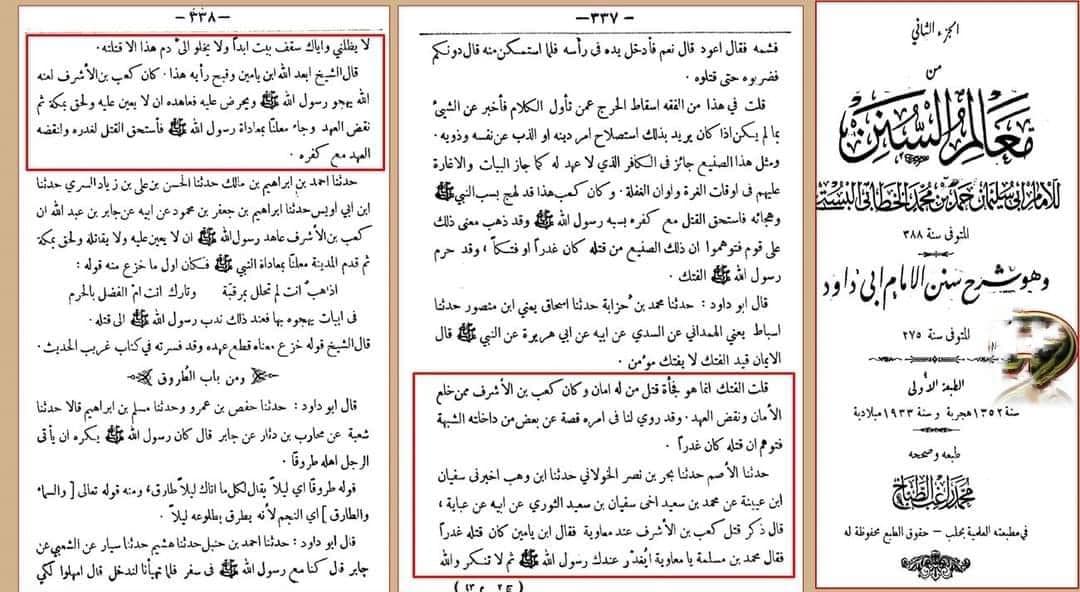 الجزء الثاني
من
معالم السنن
للامام ابي سليمان حمد بن محمد الخطابي البستي
المتوفى سنة ٣٨٨
وهو شرح سنن الامام ابي داود
المتوفى سنة ٢٧٥
الطبعة الأولى
سنة ١٣٥٢ هجرية و سنة ١٩٣٣ ميلادية
طبعه وصححه
محمد راغب الطباخ
في مطبعته العلمية بحلب - حقوق الطبع محفوظة له
—٣٣٧—
فشمه فقال اعود قال نعم فأدخل يده فى رأسه فلما استمكن منه قال دونكم
فضربوه حتى قتلوه .
قلت في هذا من الفقه إسقاط الحرج عمن تأول الكلام فأخبر عن الشيئ
بما لم يكن اذا كان يريد بذلك استصلاح امر دينه او الذب عن نفسه وذويه .
ومثل هذا الصنيع جائز في الكافر الذي لا عهد له كما جاز البيات والاغارة
عليهم فى اوقات الغرة واوان الغفلة . وكان كعب هذا قد لهج بسب النبي ﷺ
وهجائه فاستحق القتل مع كفره بسبه رسول الله ﷺ وقد ذهب معنى ذلك
على قوم فتوهموا ان ذلك الصنيع من قتله كان غدراً او فتكاً ، وقد حرم
رسول الله ﷺ الفتك .
قال ابو داود : حدثنا محمد بن حزابة حدثنا اسحاق يعني ابن منصور حدثنا
اسباط يعني الهمداني عن السدي عن ابيه عن ابي هريرة عن النبي ﷺ قال
الايمان قيد الفتك لا يفتك مؤمن .
قلت الفتك انما هو فجأة قتل من له امان وكان كعب بن الأشرف ممن خلع
الأمان ونقض العهد . وقد روي لنا فى امره قصة عن بعض من داخلته الشبهة
فتوهم ان قتله كان غدراً .
حدثنا الأصم حدثنا بحر بن نصر الخولاني حدثنا ابن وهب اخبرنى سفيان
ابن عيينة عن محمد بن سعيد اخى سفيان بن سعيد الثوري عن ابيه عن عباية ،
قال ذكر قتل كعب بن الأشرف عند معاوية فقال ابن يامين كان قتله غدراً
فقال محمد بن مسلمة يا معاوية ايُغدَر عندك رسول الله ﷺ ثم لا تنكر والله
—٣٣٨—
لا يظلني واياك سقف بيت ابداً ولا يخلو الىّ دم هذا الا قتلته .
قال الشيخ ابعد الله ابن يامين وقبح رأيه هذا . كان كعب بن الأشرف لعنه
الله يهجو رسول الله ﷺ ويحرض عليه فعاهده ان لا يعين عليه ولحق بمكة ثم
نقض العهد وجاء معلناً بمعاداة رسول الله ﷺ فأستحق القتل لغدره وانقضه
العهد مع كفره .
حدثنا احمد بن ابراهيم بن مالك حدثنا الحسن بن على بن زياد السري حدثنا
ابن ابي اويس حدثنا ابراهيم بن جعفر بن محمود عن ابيه عن جابر بن عبد الله ان
كعب بن الأشرف عاهد رسول الله ﷺ ان لا يعين عليه ولا يقاتله ولحق بمكة
ثم قدم المدينة معلناً بمعاداة النبي ﷺ فكان اول ما خزع منه قوله :
اذهبٌ انت لم تحلل بمرقبة وتارك انت امّ الفضل بالحرم
فى ابيات يهجوه بها فعند ذلك ندب رسول الله ﷺ الى قتله .
قال الشيخ قوله خزع معناه قطع عهده وقد فسرته في كتاب غريب الحديث .
ومن باب الطُروق
قال ابو داود : حدثنا حفص بن عمرو وحدثنا مسلم بن ابراهيم قالا حدثنا
شعبة عن محارب بن دثار عن جابر قال كان رسول الله ﷺ يكره ان يأتى
الرجل اهله طروقاً .
قوله طروقاً اي ليلاً يقال لكل ما اتاك ليلاً طارق، ومنه قوله تعالى [ والسماء
والطارق ] اي النجم لأنه يطرق بطلوعه ليلاً .
قال ابو داود : حدثنا احمد بن حنبل حدثنا هشيم حدثنا سيار عن الشعبي عن
جابر قال كنا مع رسول الله ﷺ فى سفر فلما تهيأنا لندخل قال امهلوا لكي